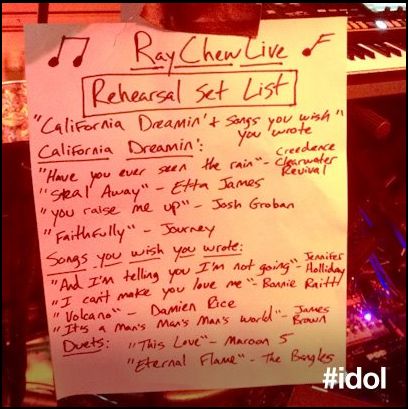 Ray Chew Live
Rehearsal Set List
"California Dreamin' & Songs you wish"
you wrote
California Dreamin':
"Have you ever seen the rain" - Creedence Clearwater Revival
"Steal Away" - Etta James
"You raise me up" - Josh Groban
"Faithfully" - Journey
Songs you wish you wrote:
"And I'm telling you I'm not going" - Jennifer Holliday
"I can't make you love me" - Bonnie Raitt
"Volcano" - Damien Rice
"It's a man's man's man's world" - James Brown
Duets: "This Love" - Maroon 5
"Eternal Flame" - The Bangles
#idol